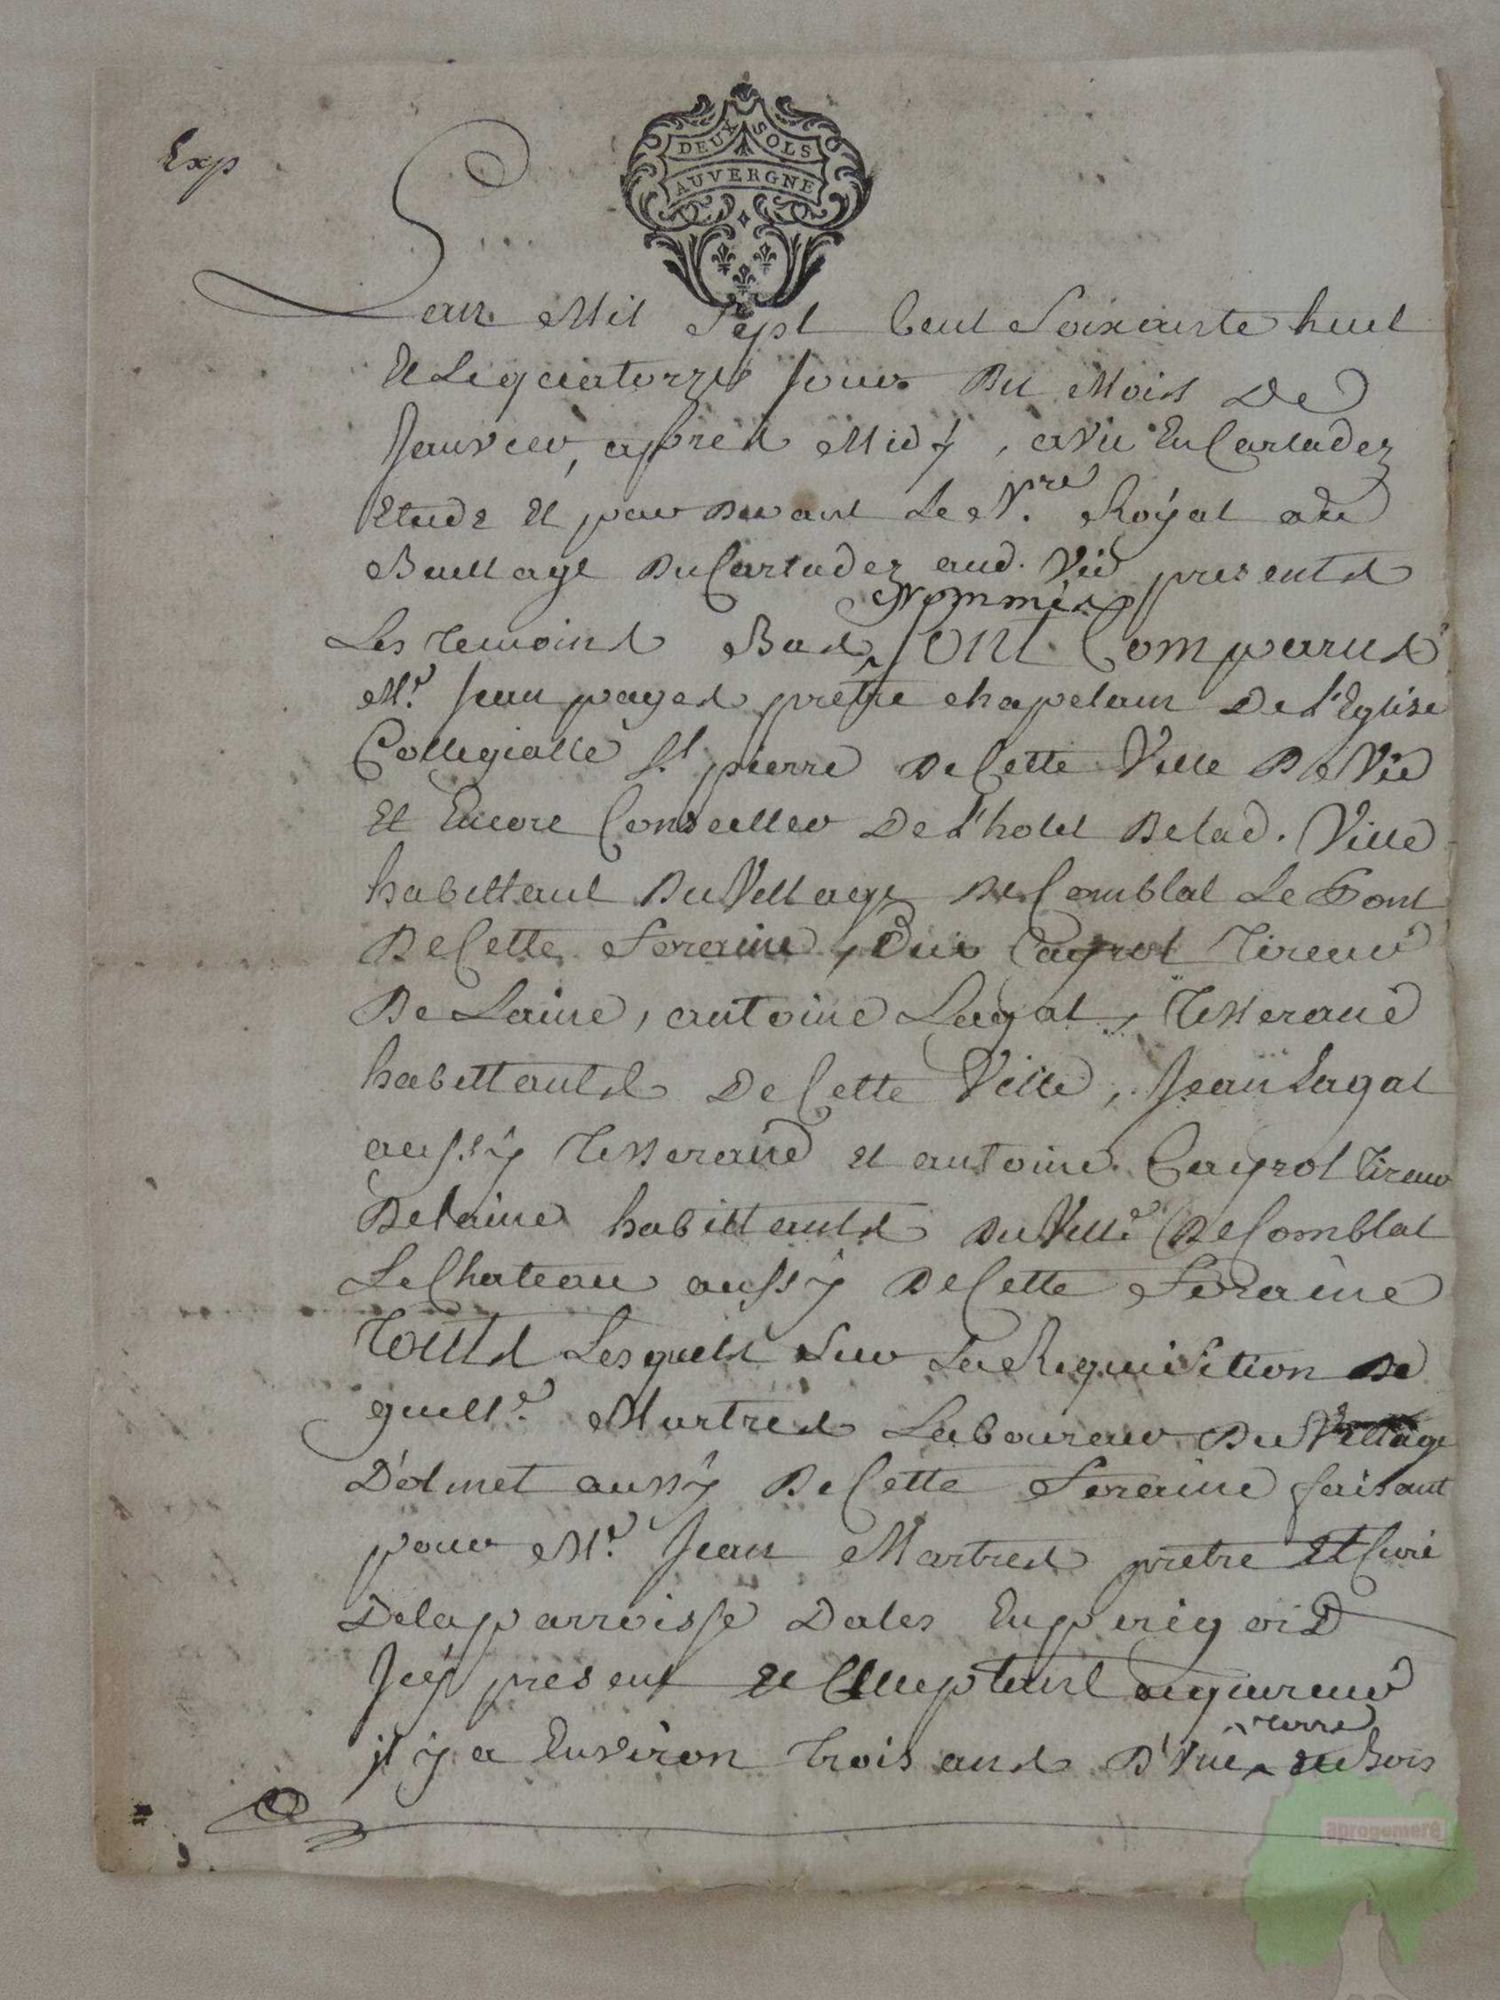 Exp
DEUX SOLS
AUVERGNE
Lan Mil Sept Cent Soixante huit
Et Le quatorze Jour Du Mois De
Janvier, apres Midy, a Vic En Carladez
Etude Et par Devant Le N.re Royal au
Bailliage Du Carladez aud. Vic presents
Les temoins Bas nommés Sont Comparus
Mr. Jean pages prêtre chapelain De L'Eglise
Collegialle St pierre De Cette Ville De Vic
Et Encore Conseiller De L'hotel De lad. Ville
habittant Du Village De Comblat Le Pont
De Cette Paroisse, Cayrol Tireur
De Laine, antoine Lagat, Tisserand
habittants De Cette Ville, Jean Lagat
aussy Tisserand et antoine Cayrol Tireur
De laine habittants Du Ville. De Comblat
Le Chateau aussy De Cette
Touts Lesquels Sur La Requisition De
guille. Martres Laboureur Du Village
D'olmet aussy De Cette faisant
pour Mr. Jean Martres pretre Et Curé
De la parroisse Dales En perigord
Icy present Et Acceptant
il y a Environ Trois ans D'une terre et Bois
aprogemere